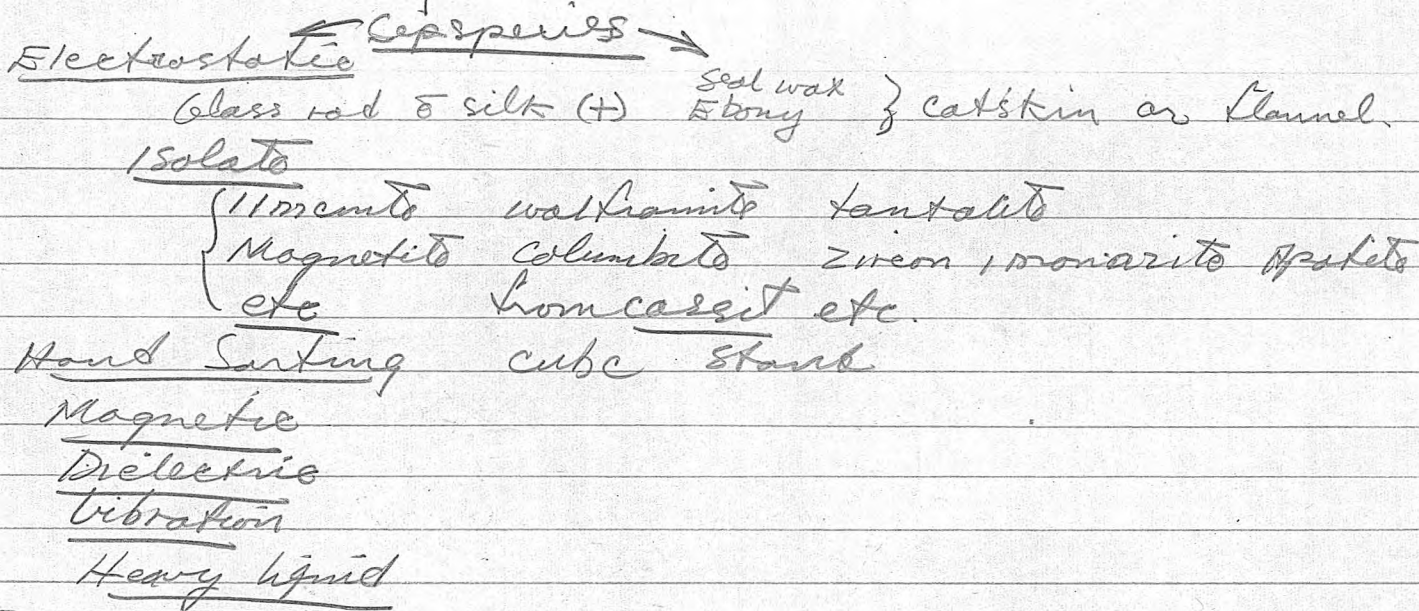 Electrostatic
Glass rod c̄ silk (+) Seal wax Ebony } catskin or flannel.
Isolate
Ilmenite wolframite tantalite
Magnetite columbite zircon, monazite Apatite
etc from cassit etc.
Hand Sorting cube
Magnetic
Dielectric
Vibration
Heavy liquid